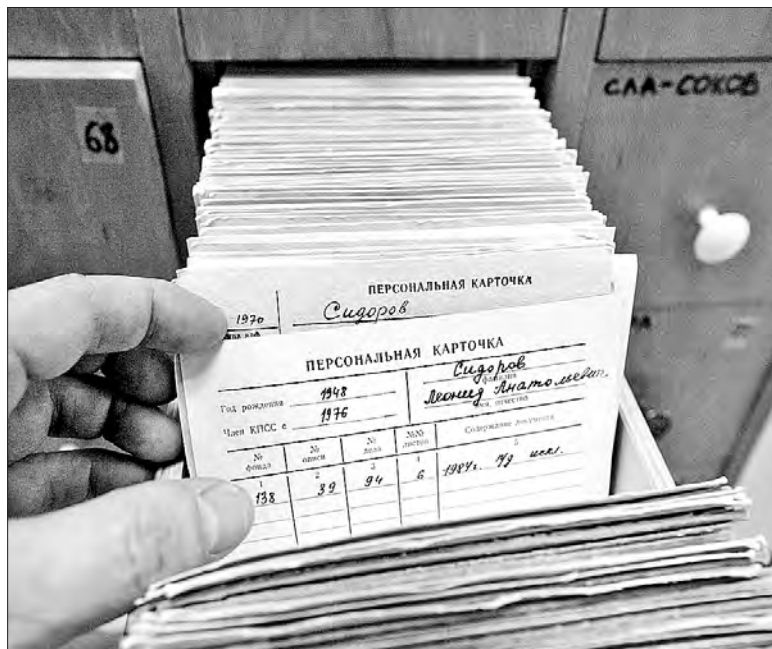 68
СЛА-СОКОВ
ПЕРСОНАЛЬНАЯ КАРТОЧКА
1970
Сидоров
ПЕРСОНАЛЬНАЯ КАРТОЧКА
Год рождения 1948
Член КПСС с 1976
Сидоров
фамилия
Леонид Анатольевич
имя, отчество
№ фонда № описи № дела №№ листов Содержание документа
1 2 3 4 5
138 39 94 6 1984г. п/д искл.